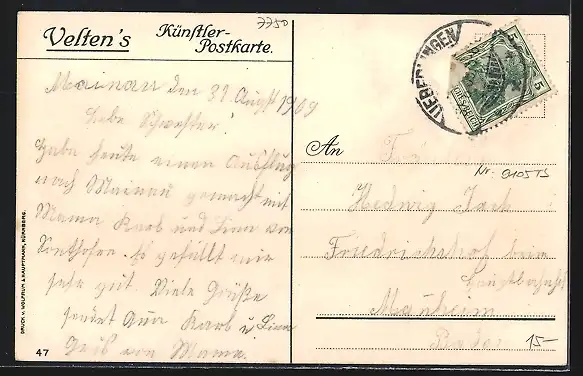 7750
Velten's Künstler-Postkarte.
Mainau den 31. August 1909
Liebe Schwester!
Habe heute einen Ausflug
nach Mainau gemacht mit
Mama Karb und Lina von
Sonthofen. Es gefällt mir
sehr gut. Viele Grüße
sendet Karb u Lina
Gruß von Mama.
DRUCK V. WOLFRUM & HAUPTMANN, NÜRNBERG.
47
UEBERLINGEN
5 5
DEUTSCHES REICH
An
Nr:
Hedwig
Friedrichshof beim
Hauptbahnhof
Manheim
Baden
15-